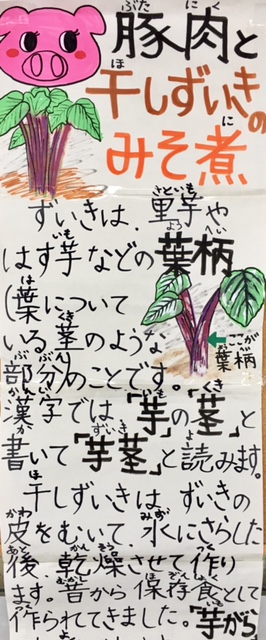 豚肉と
干しずいきの
みそ煮
ずいきは、里芋や
はす芋などの葉柄
(葉について
いる茎のような
ここが
葉柄
部分)のことです。
漢字では「芋」の「茎」と
書いて「芋茎」と読みます。
干しずいきは、ずいきの
皮をむいて、水にさらした
後、乾燥させて作り
ます。昔から保存食として
作られてきました。「芋がら